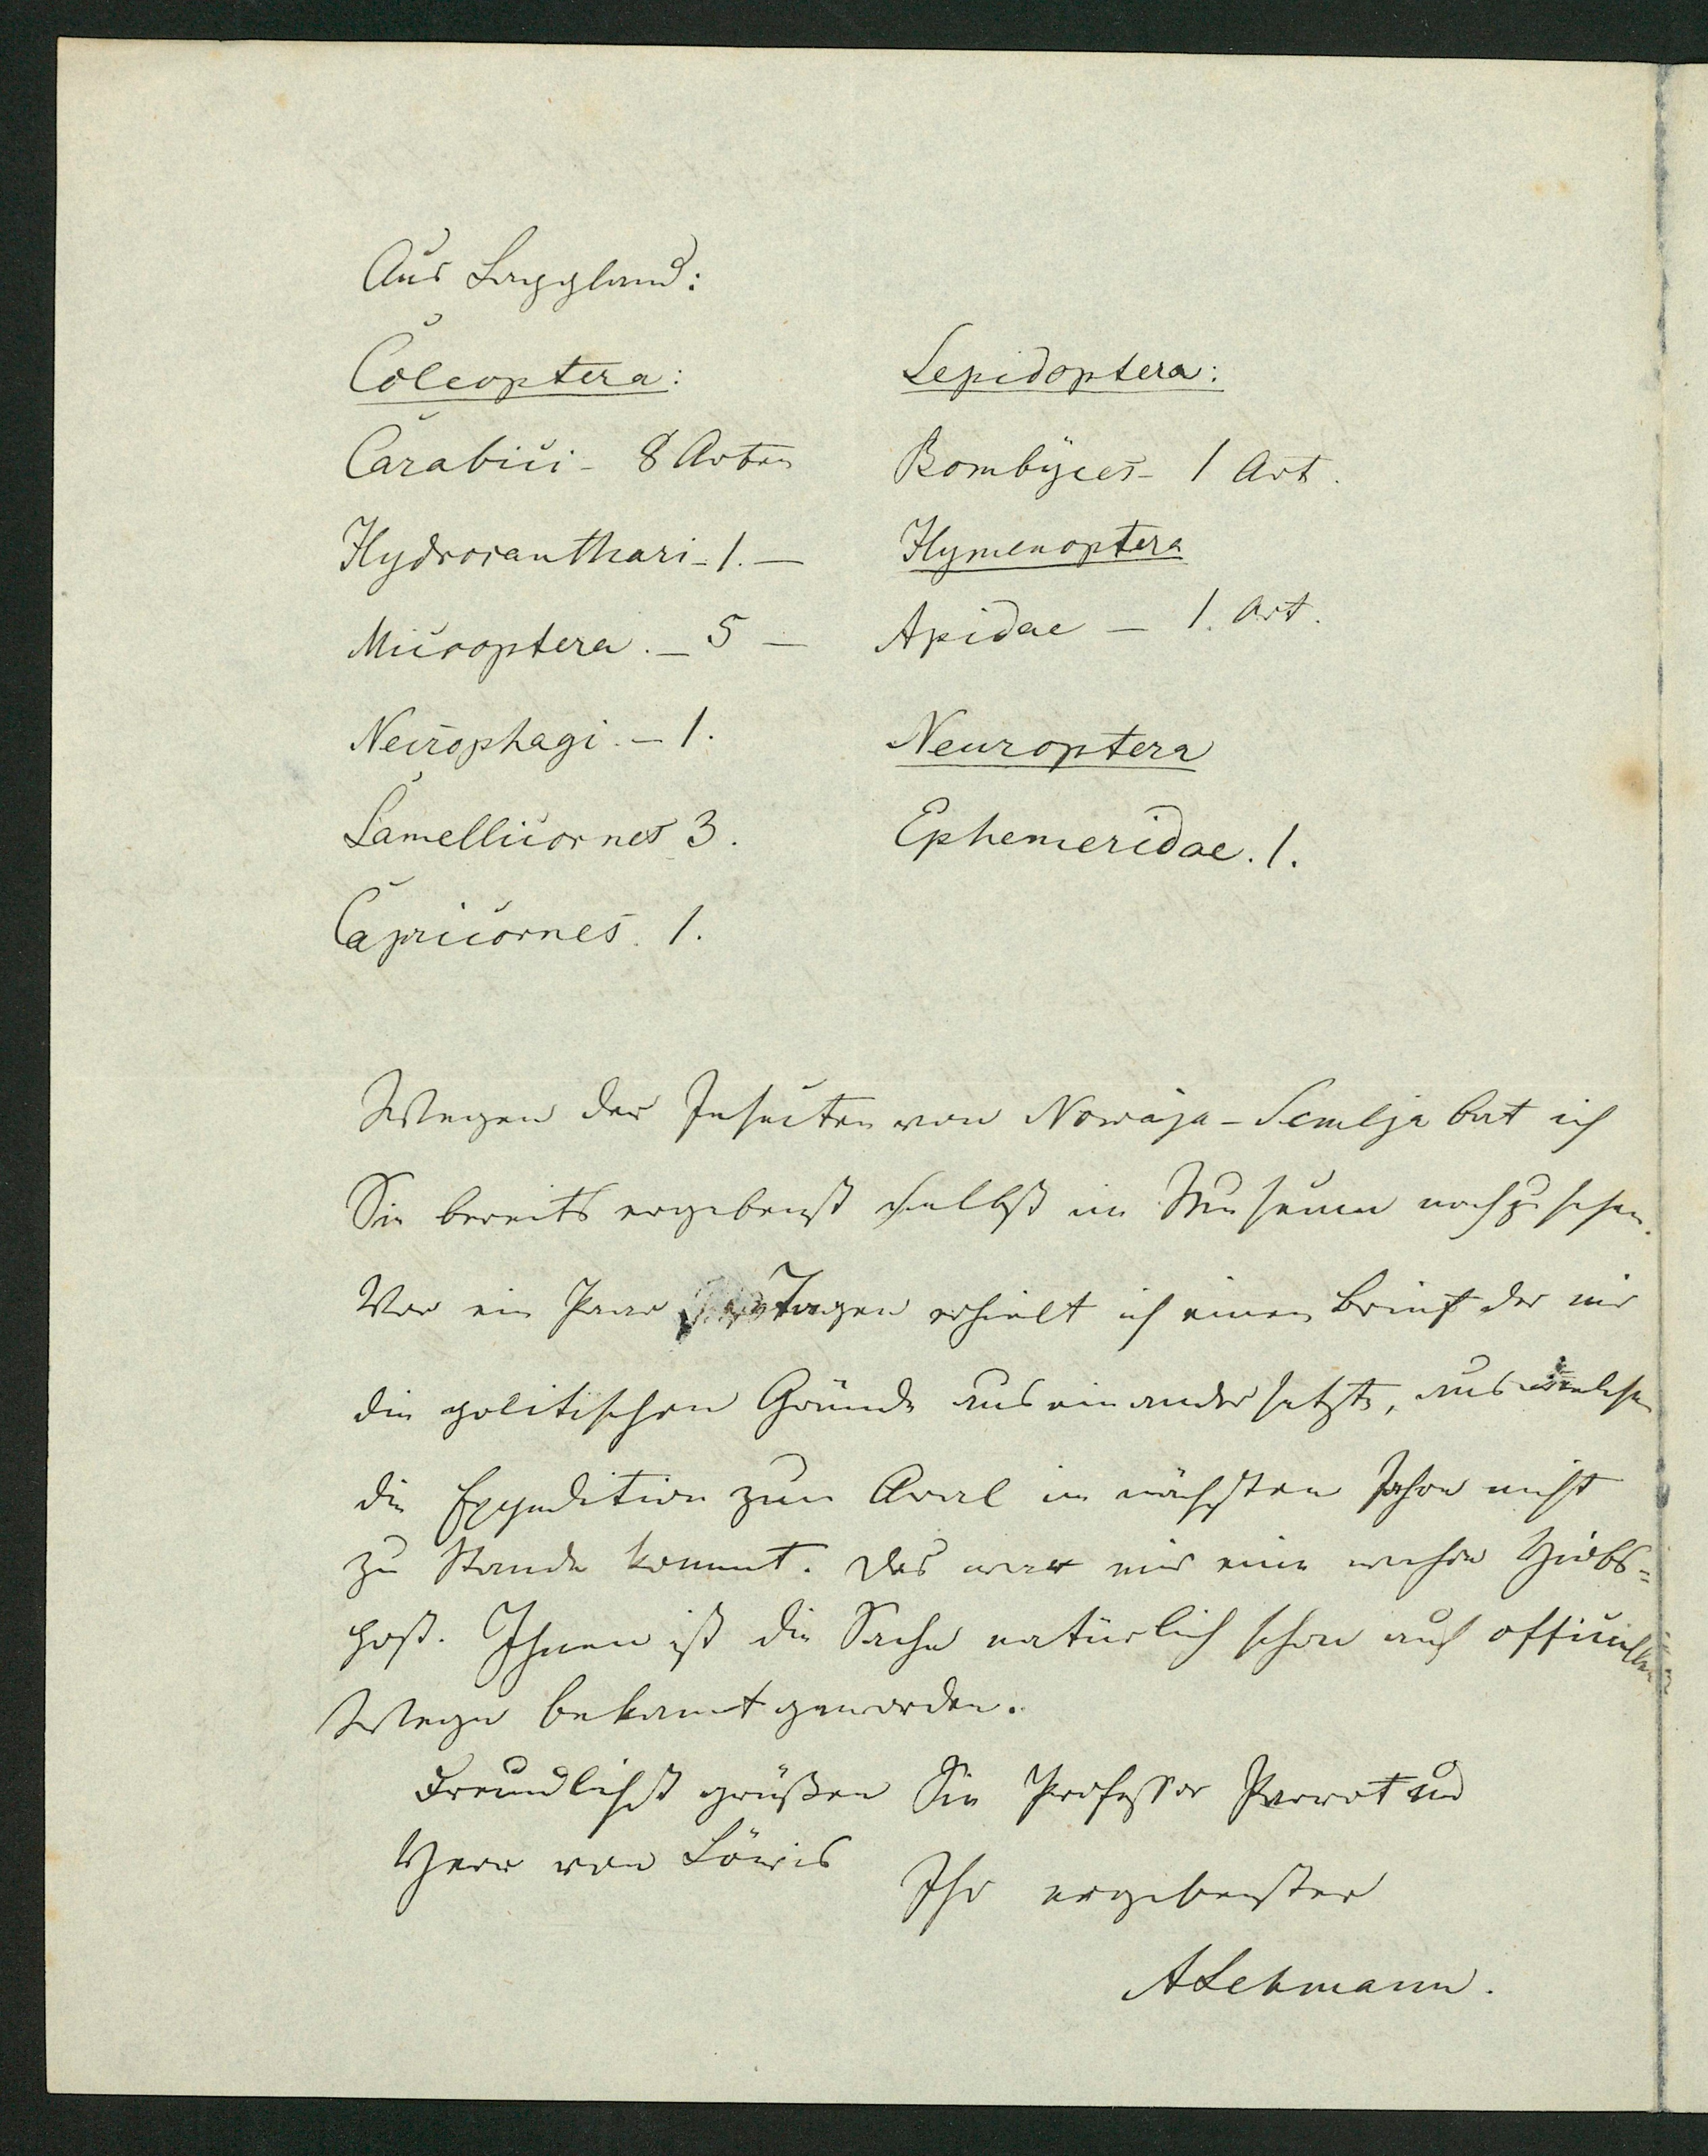 Aus Lappland:
Coleoptera:
Carabici - 8 Arten
Hydrocanthari - 1. —
Microptera. — 5 —
Necrophagi. — 1.
Lamellicornes 3.
Capricornes. 1.
Lepidoptera:
Bombyces - 1 Art.
Hymenoptera
Apidae — 1. Art.
Neuroptera
Ephemeridae. 1.
Wegen der Insecten von Nowaja-Semlja bat ich
Sie bereits ergebenst selbst im Museum nachzusehen.
Vor ein Paar Tagen erhielt ich einen Brief der mir
die politischen Gründe auseinander setzte, aus welchen
die Expedition zum Aral im nächsten Jahre nicht
zu Stande kommt. Das war mir eine wahre Hiobs=
post. Ihnen ist die Sache natürlich schon auf officiellen
Wege bekannt geworden.
Freundlichst grüßen Sie Professor Parrot und
Herr von Löwis
Ihr ergebenster
ALehmann.